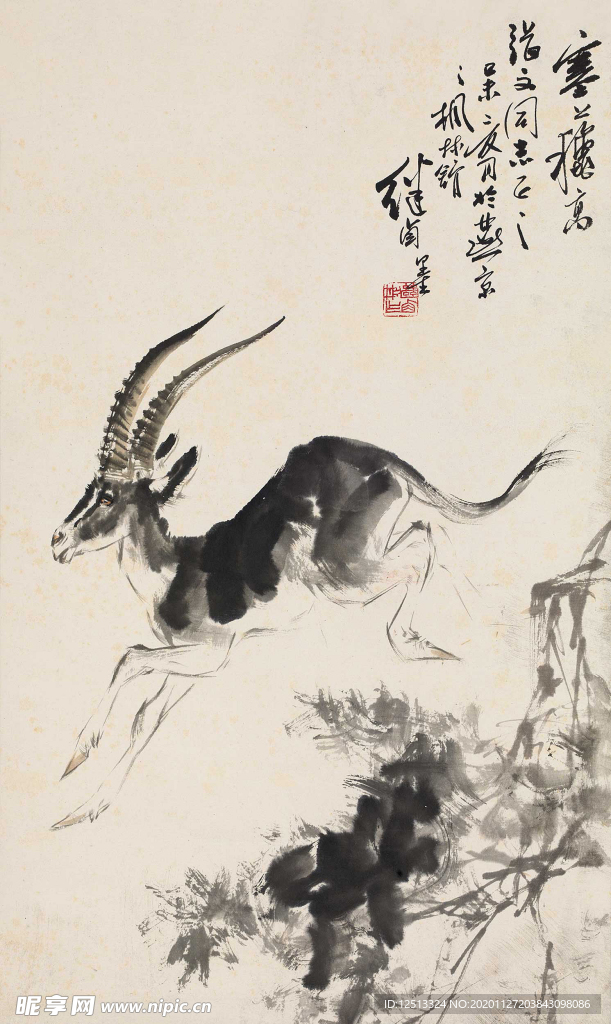 塞上
高
张文同志正之
己未二夜月於燕京
之枫林馆
继卣墨
昵享网 www.nipic.cn
ID:12513324 NO:20201127203843098086